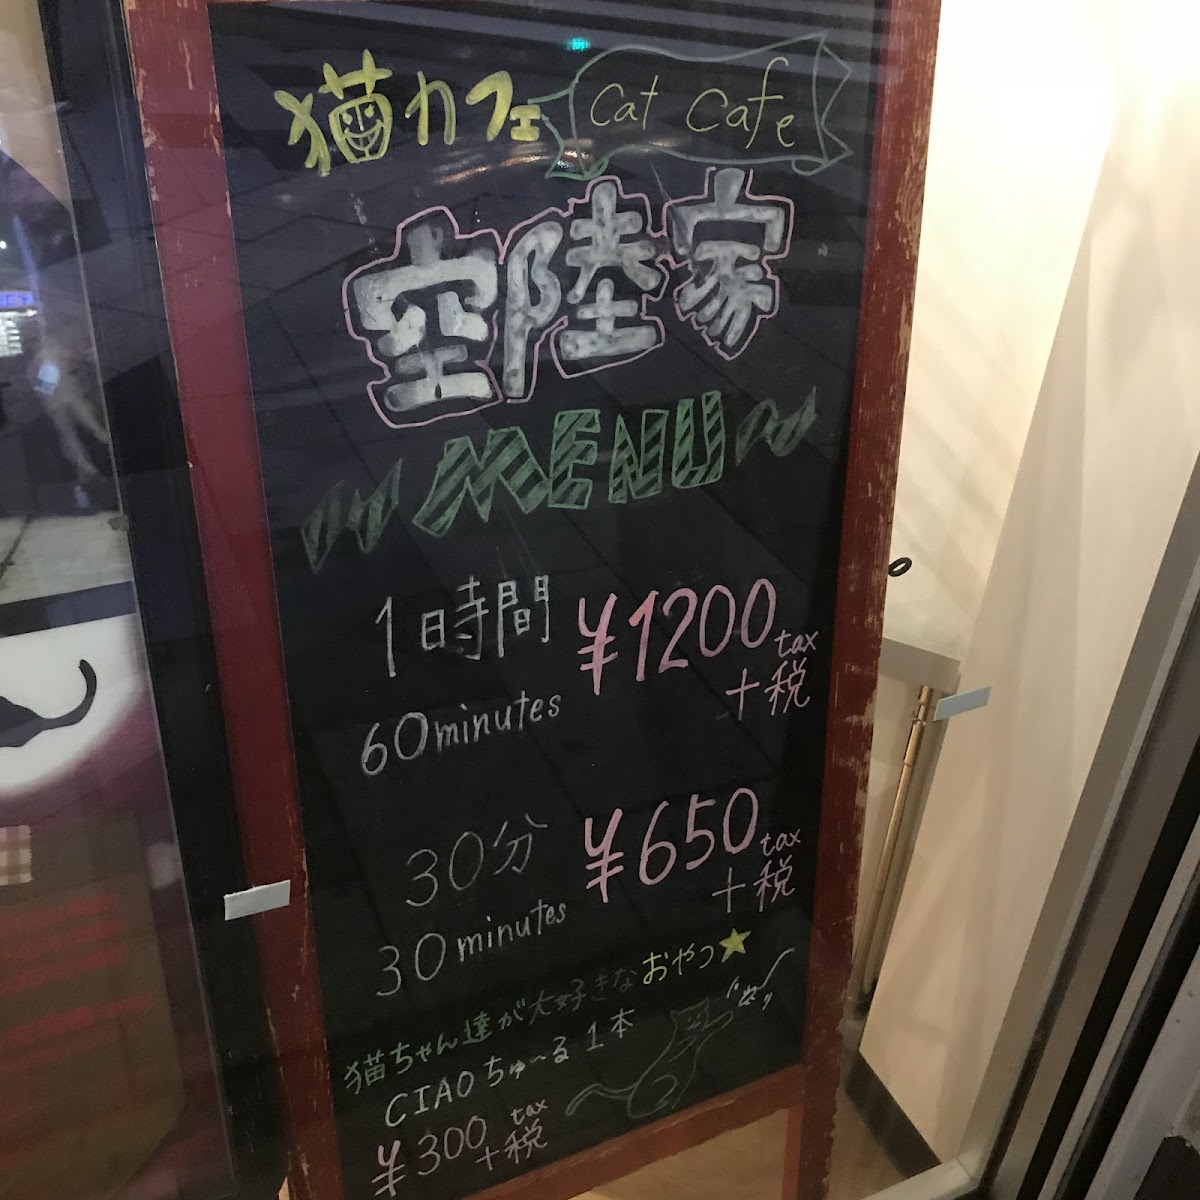 猫カフェ Cat Cafe
空陸家
MENU
1時間 ¥1200 tax
60minutes +税
30分 ¥650 tax
30minutes +税
猫ちゃん達が大好きなおやつ★
CIAOちゅ~る 1本
¥300 tax
+税